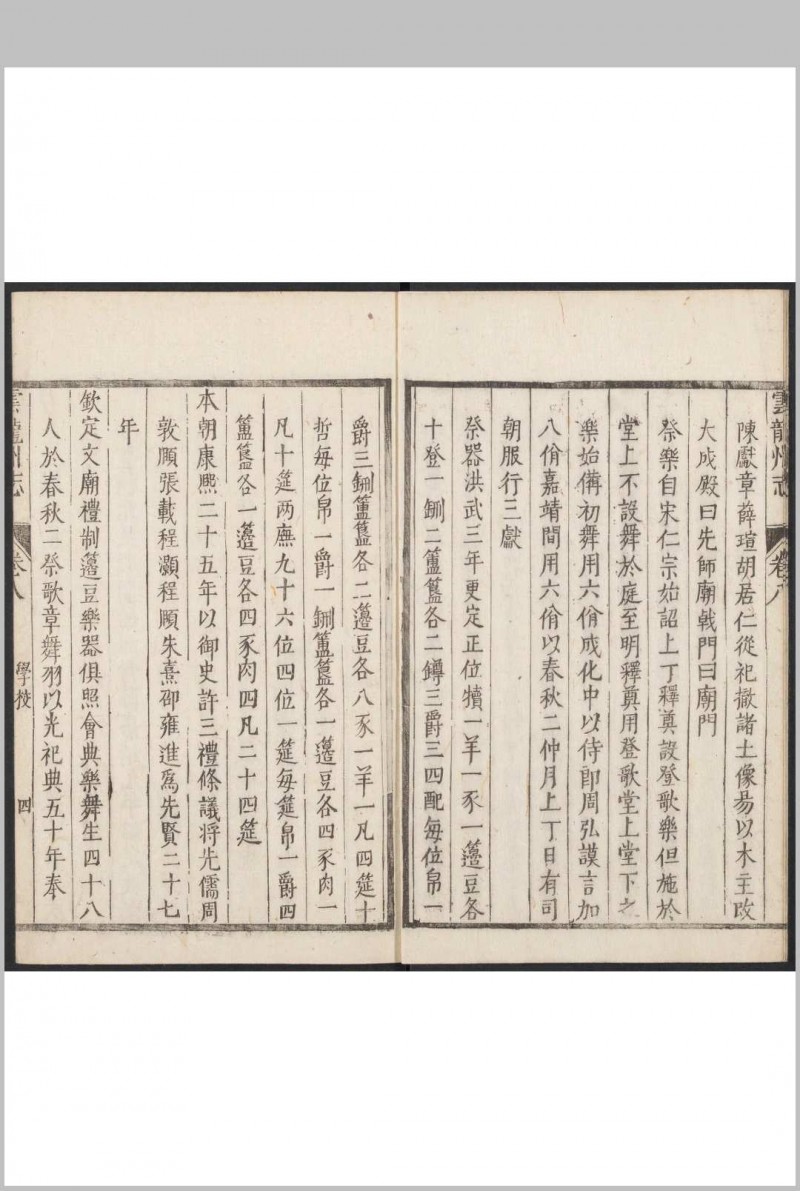 雲龍州志 卷八
陳獻章薛瑄胡居仁從祀撤諸土像易以木主改
大成殿曰先師廟戟門曰廟門
祭樂自宋仁宗始詔上丁釋奠設登歌樂但施於
堂上不設舞於庭至明釋奠用登歌堂上堂下之
樂始備初舞用六佾成化中以侍郎周弘謨言加
八佾嘉靖間用六佾以春秋二仲月上丁日有司
朝服行三獻
祭器洪武三年更定正位犢一羊一豕一籩豆各
十登一鉶二簠簋各二鐏三爵三四配每位帛一
爵三鉶簠簋各二籩豆各八豕一羊一凡四筵十
哲每位帛一爵一鉶簠簋各一籩豆各四豕肉一
凡十筵两廡九十六位四位一筵每筵帛一爵四
簠簋各一籩豆各四豕肉四凡二十四筵
本朝康熙二十五年以御史許三禮條議将先儒周
敦頤張載程顥程頤朱熹邵雍進爲先賢二十七
年
欽定文廟禮制籩豆樂器俱照會典樂舞生四十八
人於春秋二祭歌章舞羽以光祀典五十年奉
雲龍州志 卷八 學校 四